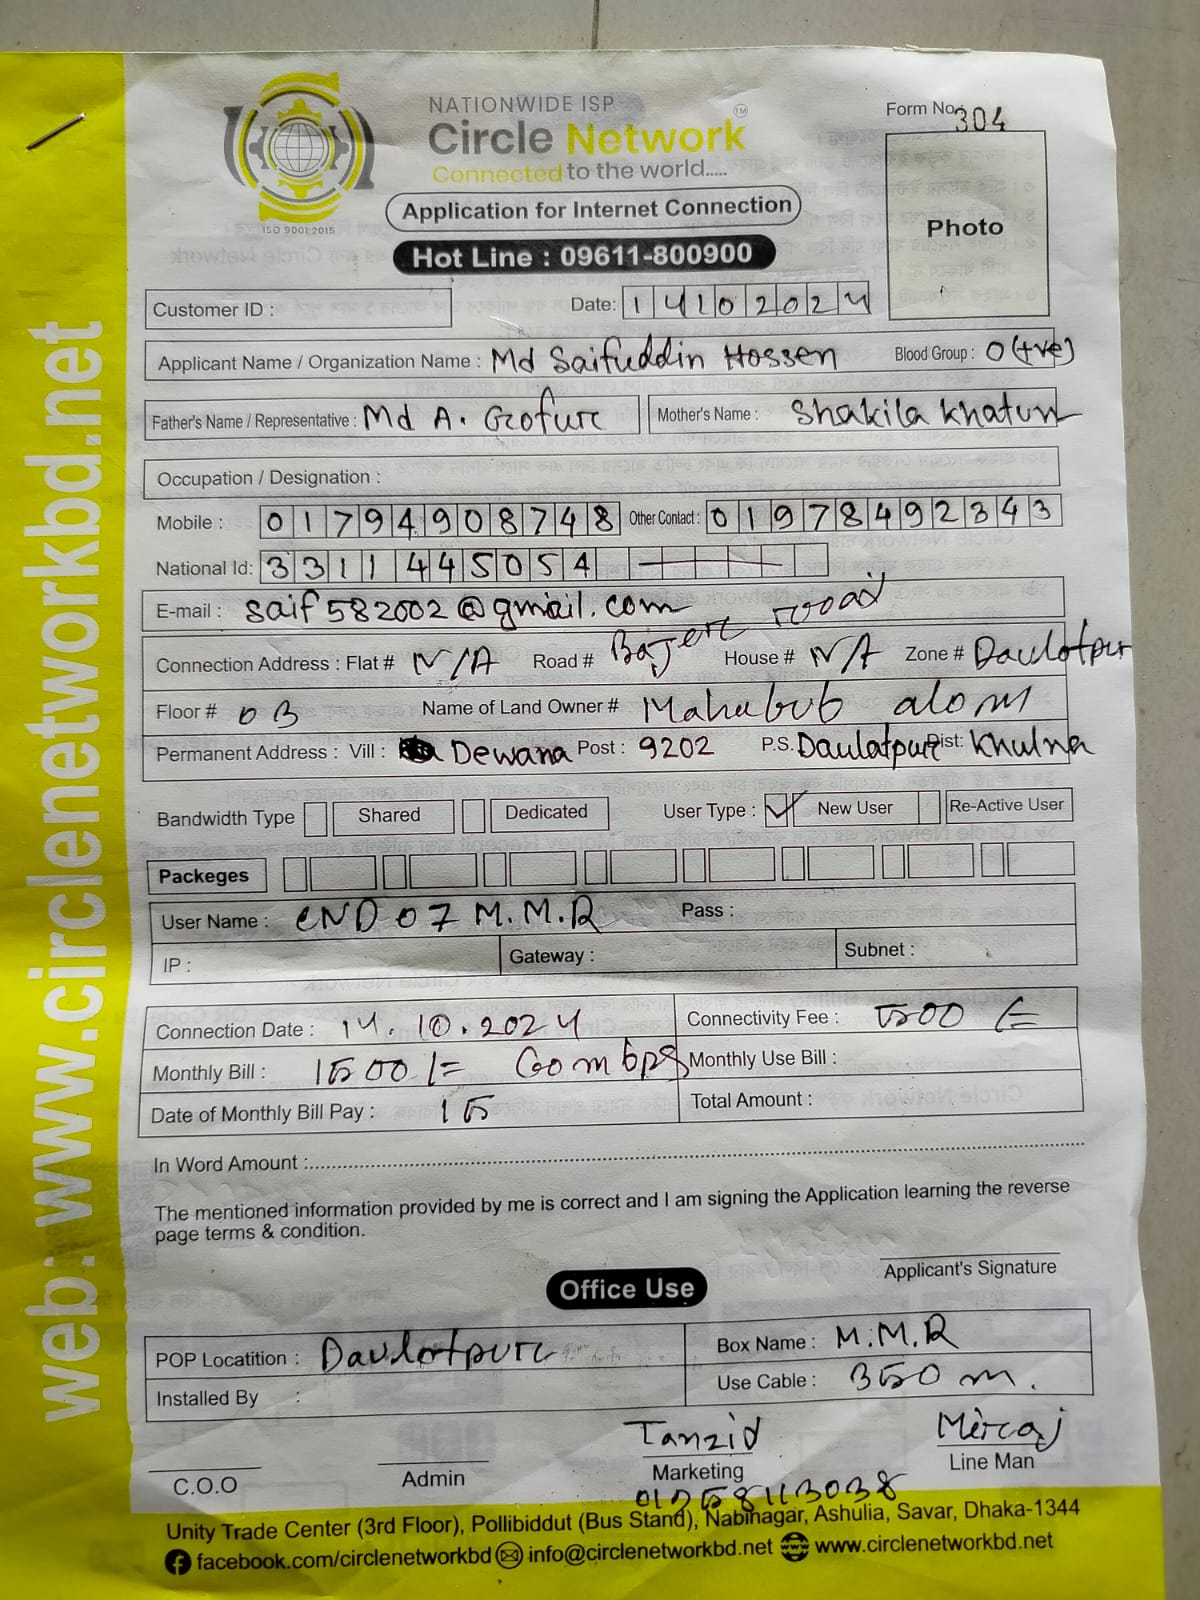 NATIONWIDE ISP
Circle Network TM
Connected to the world.....
ISO 9001:2015
Form No. 304
Photo
Application for Internet Connection
Hot Line : 09611-800900
web: www.circlenetworkbd.net
Customer ID :
Date: 14102024
Applicant Name / Organization Name : Md Saifuddin Hossen Blood Group : O(+ve)
Father's Name / Representative : Md A. Gofur Mother's Name : Shakila Khatun
Occupation / Designation :
Mobile : 01794908748 Other Contact : 01978492343
National Id: 3311445054
E-mail : saif582002@gmail.com
Connection Address : Flat # N/A Road # Bajer road House # N/A Zone # Daulotpur
Floor # 03 Name of Land Owner # Mahabub alom
Permanent Address : Vill : Dewana Post : 9202 P.S. Daulatpur Dist: Khulna
Bandwidth Type Shared Dedicated User Type : ✓ New User Re-Active User
Packeges
User Name : CND 07 M.M.R Pass :
IP : Gateway : Subnet :
Connection Date : 14.10.2024 Connectivity Fee : 500 /=
Monthly Bill : 1500 /= 60 mbps Monthly Use Bill :
Date of Monthly Bill Pay : 15 Total Amount :
In Word Amount :
The mentioned information provided by me is correct and I am signing the Application learning the reverse
page terms & condition.
Applicant's Signature
Office Use
POP Locatition : Daulotpur Box Name : M.M.R
Installed By : Use Cable : 350 m.
Tanzid Miraj
C.O.O Admin Marketing Line Man
Unity Trade Center (3rd Floor), Pollibiddut (Bus Stand), Nabinagar, Ashulia, Savar, Dhaka-1344
facebook.com/circlenetworkbd info@circlenetworkbd.net www.circlenetworkbd.net